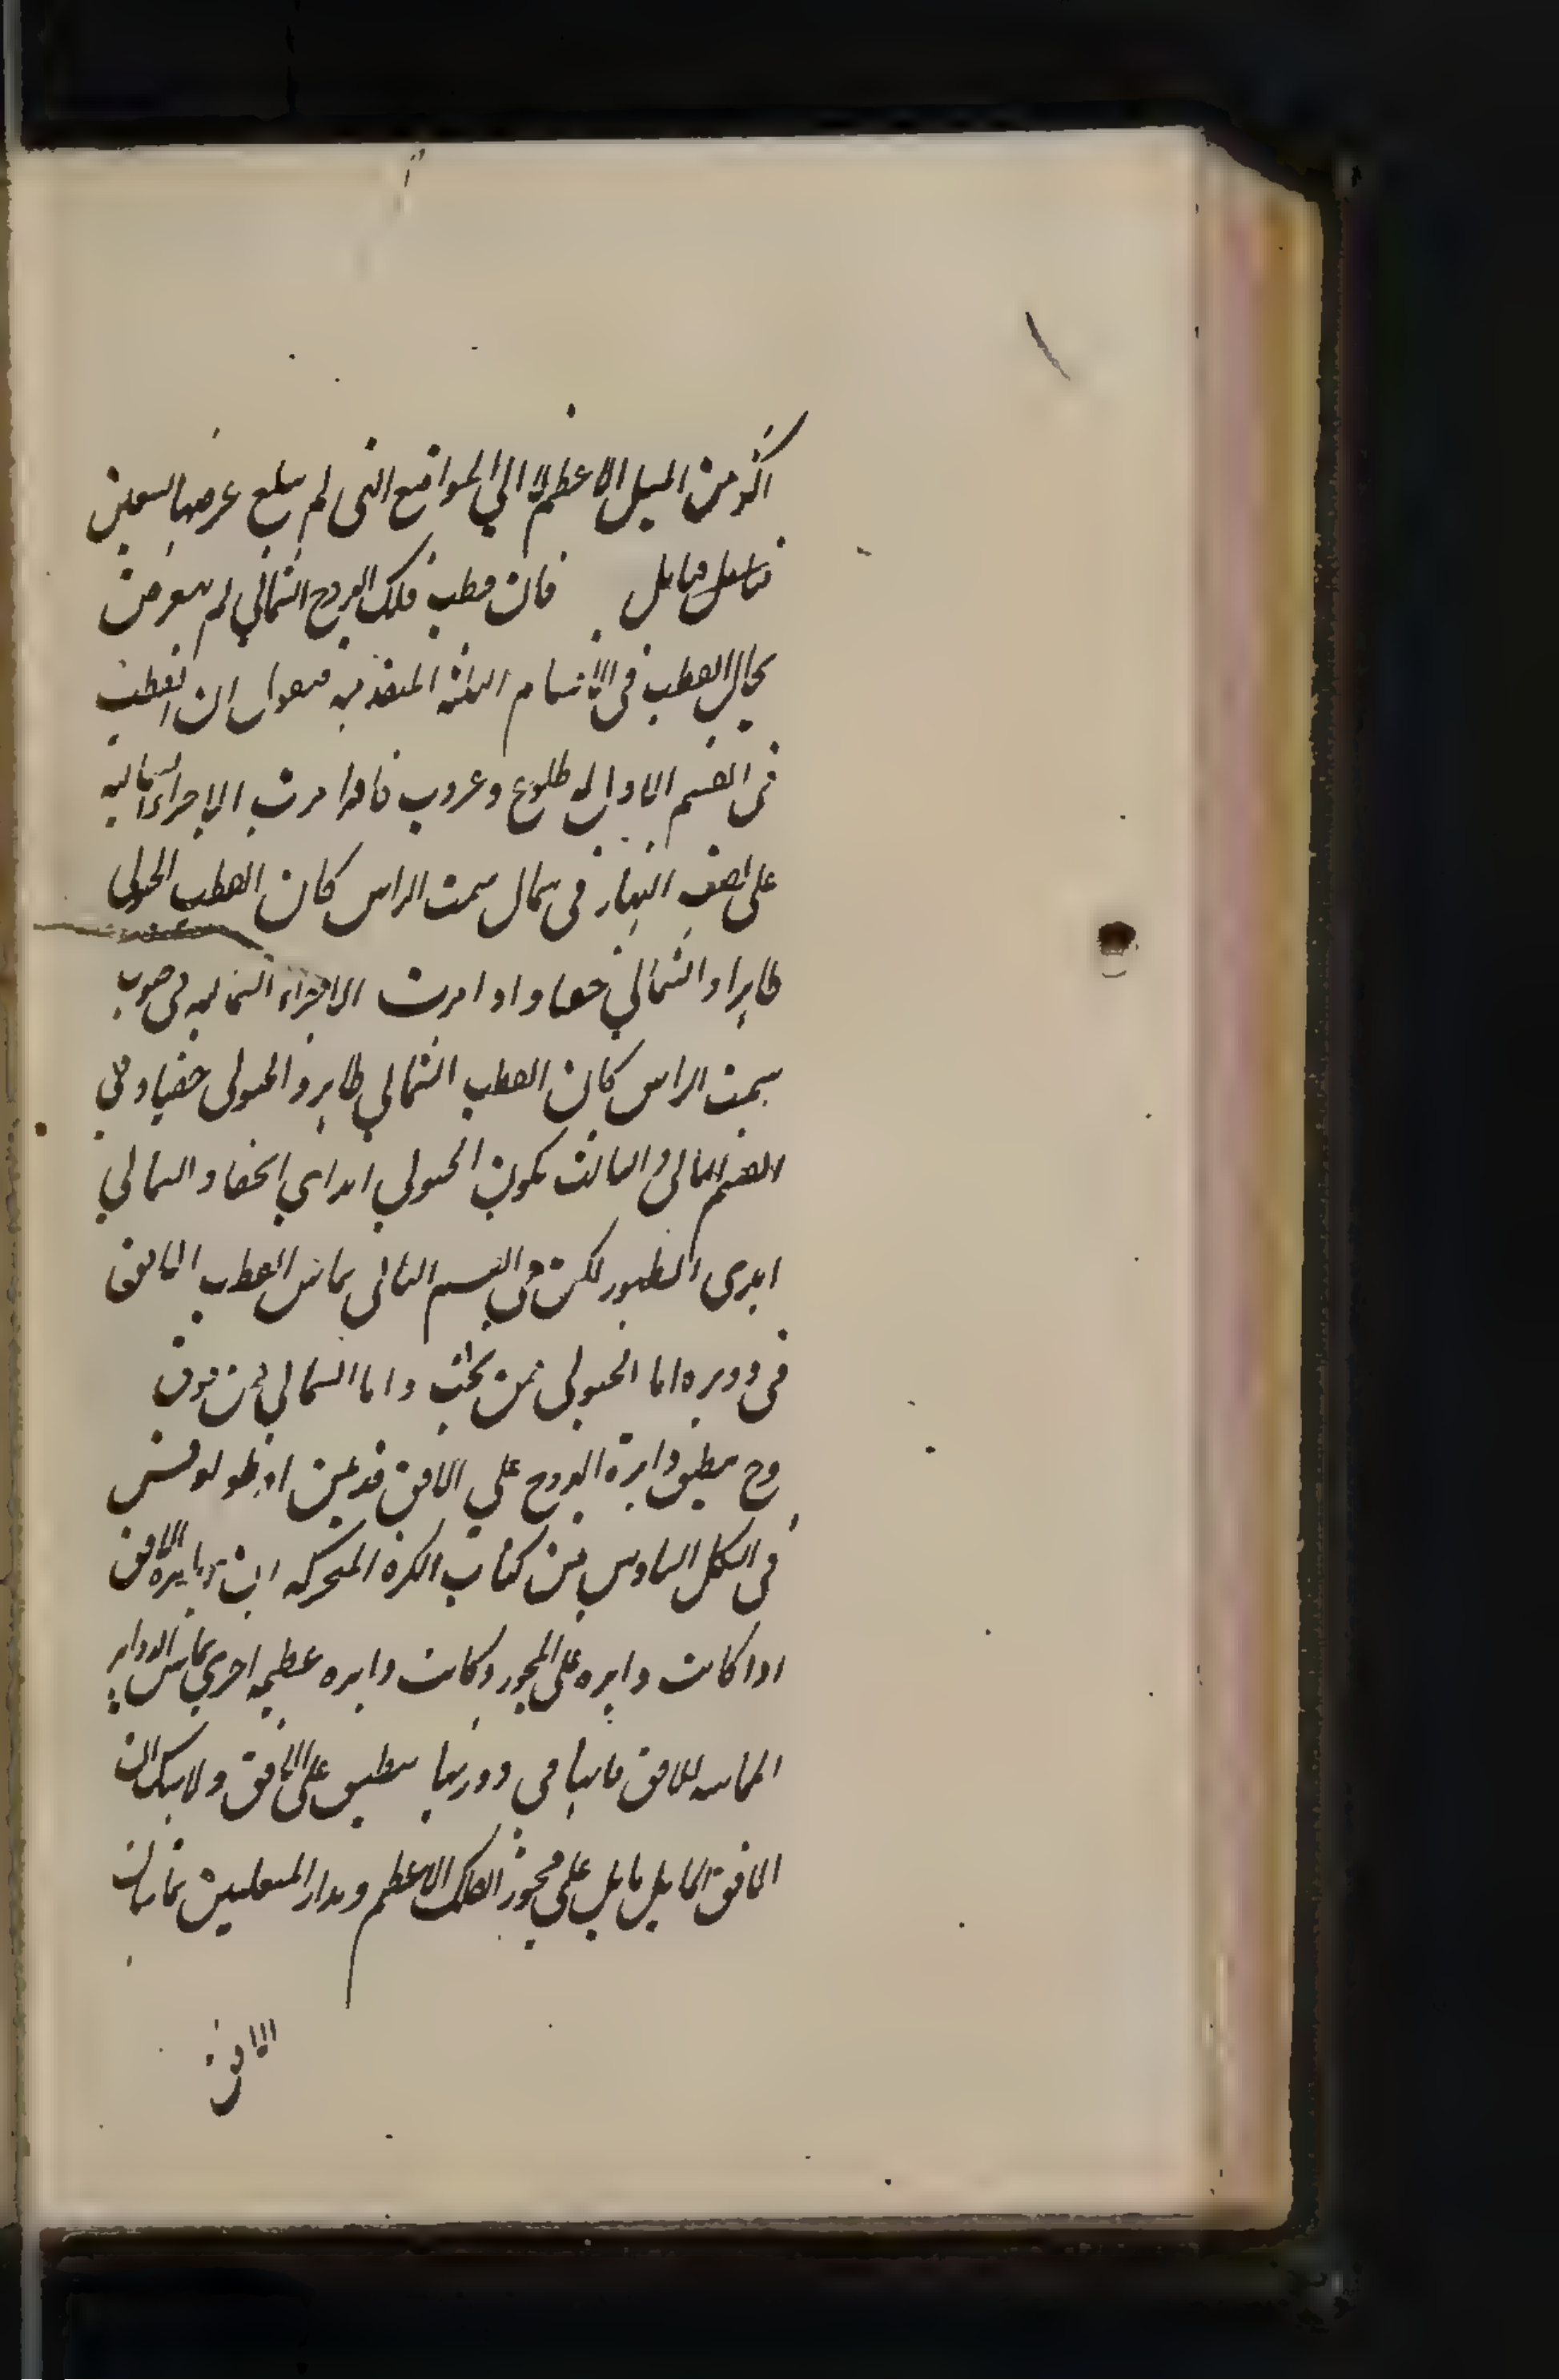 اكثر من الميل الاعظم الى المواضع التى لم يبلغ عرضها تسعين
فان قطب فلك البروج الشمالي لم يتعرض
بحال القطب فى الاقسام الثلثة المتقدمة فنقول ان القطب
فى القسم الاول له طلوع وغروب فاذا مرت الاجزاء الشمالية
على نصف النهار فى شمال سمت الراس كان القطب الجنوبى
ظاهرا والشمالي خفيا واذا مرت الاجزاء الشمالية فى صوب
سمت الراس كان القطب الشمالي ظاهرا والجنوبى خفيا وفي
القسم الثانى والثالث يكون الجنوبي ابدي الخفا والشمالي
ابدى الظهور لكن في القسم الثانى يماس القطب الافق
فى دوره اما الجنوبى فمن تحت واما الشمالي فمن فوق
وح ينطبق دايرة البروج علي الافق فقد بين اوطولوقس
فى الشكل السادس من كتاب الكرة المتحركه ان دايرة الافق
اذا كانت دايره على المحور وكانت دايره عظيمه اخري يماس الدواير
المماسه للافق فانها في دورتها ينطبق على الافق ولا شك ان
الافق المايل مايل علي محور الفلك الاعظم ومدار المنقلبين يماسان
الافق